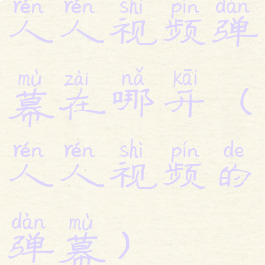 rén rén shì pín dàn
人人视频弹
mù zài nǎ kāi
幕在哪开（
rén rén shì pín de
人人视频的
dàn mù
弹幕）